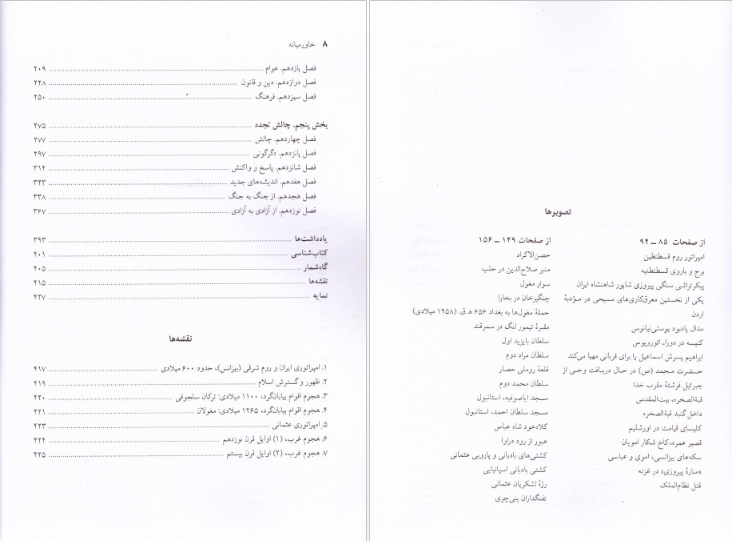 ۸ خاورمیانه
فصل یازدهم. عوام ۲۰۹
فصل دوازدهم. دین و قانون ۲۲۸
فصل سیزدهم. فرهنگ ۲۵۰
بخش پنجم. چالش تجدد ۲۷۵
فصل چهاردهم. چالش ۲۷۷
فصل پانزدهم. دگرگونی ۲۹۷
فصل شانزدهم. پاسخ و واکنش ۳۱۴
فصل هفدهم. اندیشه‌های جدید ۳۲۳
فصل هجدهم. از جنگ به جنگ ۳۳۸
فصل نوزدهم. از آزادی به آزادی ۳۶۷
یادداشت‌ها ۳۹۳
کتاب‌شناسی ۴۰۱
گاه‌شمار ۴۰۵
نقشه‌ها ۴۱۵
نمایه ۴۲۷
نقشه‌ها
۱. امپراتوری ایران و روم شرقی (بیزانس)، حدود ۶۰۰ میلادی ۴۱۷
۲. ظهور و گسترش اسلام ۴۱۹
۳. هجوم اقوام بیابانگرد، ۱۱۰۰ میلادی: ترکان سلجوقی ۴۲۰
۴. هجوم اقوام بیابانگرد، ۱۲۶۵ میلادی: مغولان ۴۲۱
۵. امپراتوری عثمانی ۴۲۳
۶. هجوم غرب، (۱) اوایل قرن نوزدهم ۴۲۴
۷. هجوم غرب، (۲) اوایل قرن بیستم ۴۲۵
تصویرها
از صفحات ۸۵ ــ ۹۲
امپراتور روم قسطنطین
برج و باروی قسطنطنیه
پیکرتراشی سنگی پیروزی شاپور شاهنشاه ایران
یکی از نخستین معرق‌کاری‌های مسیحی در مؤدبۀ
اردن
مدال یادبود یوستی‌نیانوس
کنیسه در دورا‌ـ‌ائوروپوس
ابراهیم پسرش اسماعیل را برای قربانی مهیا می‌کند
حضرت محمد (ص) در حال دریافت وحی از
جبرائیل فرشتۀ مقرب خدا
قبة‌الصخره، بیت‌المقدس
داخل گنبد قبة‌الصخره
کلیسای قیامت در اورشلیم
قصیر عمره، کاخ شکار امویان
سکه‌های بیزانسی، اموی و عباسی
«منارۀ پیروزی» در غزنه
قتل نظام‌الملک
از صفحات ۱۴۹ ــ ۱۵۶
حصن‌الاکراد
منبر صلاح‌الدین در حلب
سوار مغول
چنگیزخان در بخارا
حملۀ مغول‌ها به بغداد ۶۵۶ ه‍.ق. (۱۲۵۸ میلادی)
مقبرۀ تیمور لنگ در سمرقند
سلطان بایزید اول
سلطان مراد دوم
قلعۀ روملی حصار
سلطان محمد دوم
مسجد ایاصوفیه، استانبول
مسجد سلطان احمد، استانبول
کلاه‌خود شاه عباس
عبور از رود دراوا
کشتی‌های بادبانی و پارویی عثمانی
کشتی بادبانی اسپانیایی
رژۀ لشکریان عثمانی
تفنگداران ینی‌چری